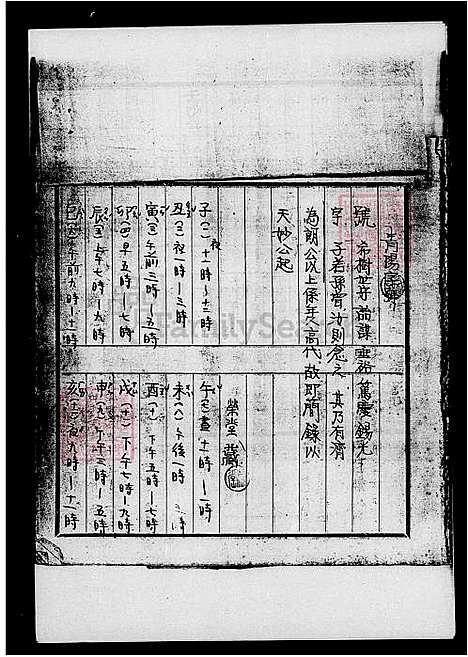 青陽
號 希樹芳 謨 裕篤慶錫光
字 子若孫曾汝則念之 其乃有濟
為朗公以上係年久高代故即簡錄以
天妙公起
榮堂藏
子(一)夜十一時ー十二時
丑(二)夜一時ー三時
寅(三)午前三時ー五時
卯(四)早五時ー七時
辰(五)上午七時ー九時
巳(六)午前九時ー十一時
午(七)晝十一時ー一時
未(八)午後一時ー三時
申(九)下午三時ー五時
酉(十)下午五時ー七時
戌(十一)下午七時ー九時
亥(十二)夜九時ー十一時
FamilySearch